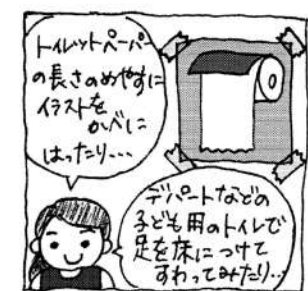 トイレットペーパー
の長さのめやすに
イラストを
かべに
はったり・・・
デパートなどの
子ども用のトイレで
足を床につけて
すわってみたり・・